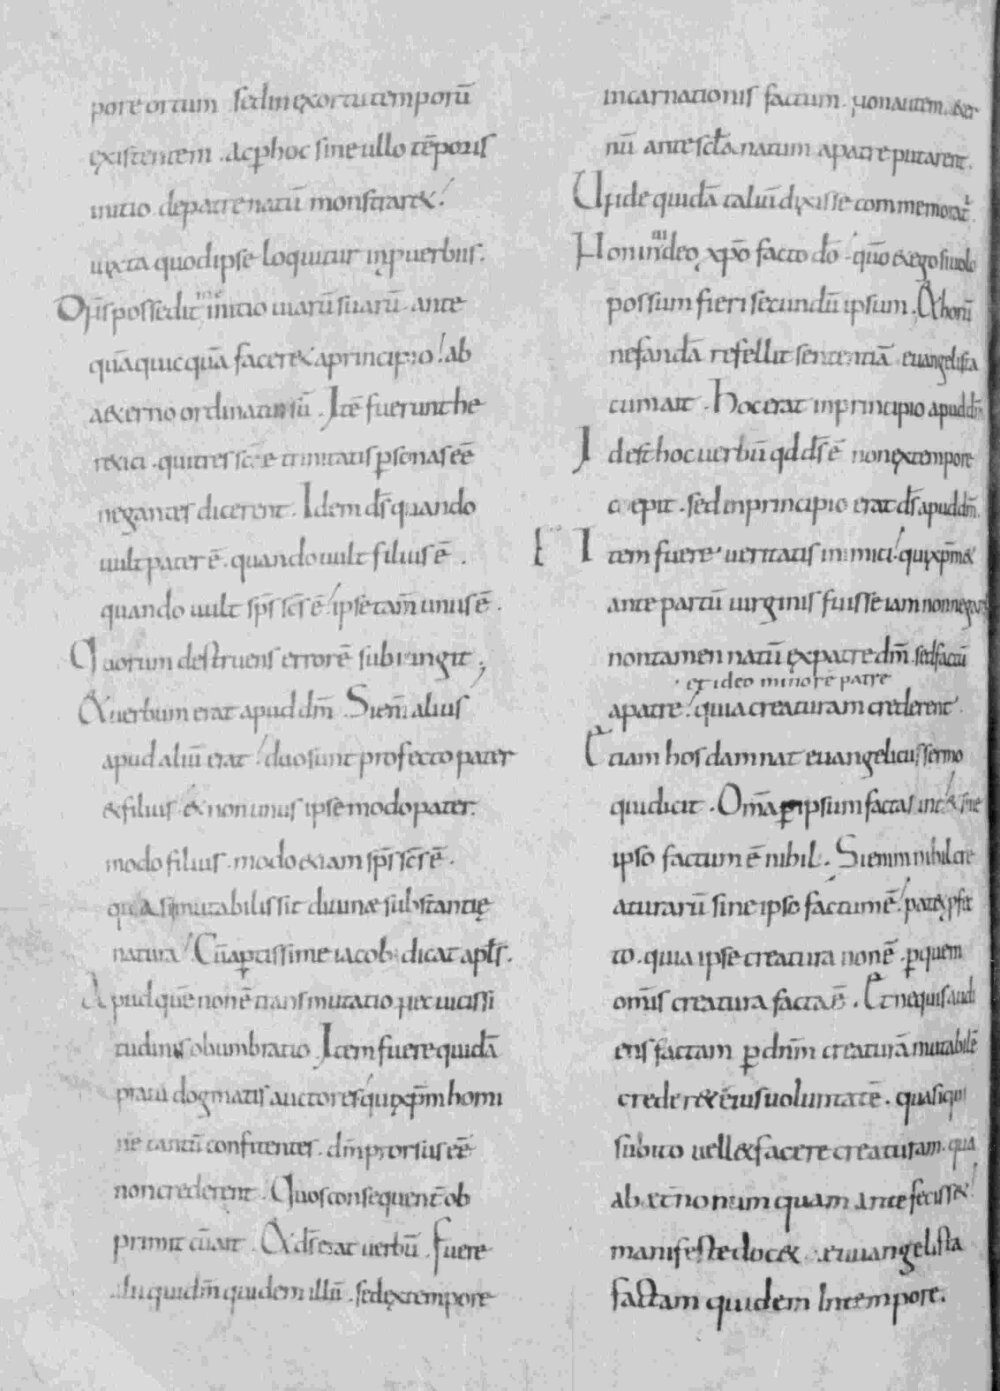 pore ortum. sed in exortu temporū
existentem. ac per hoc sine ullo tēporis
initio. de patre natū monstraret.
iuxta quod ipse loquitur in puerbiis.
Dn̄s possedit me initio uiarū suarū. ante
quā quicquā faceret a principio. ab
aeterno ordinatus sū. Itē fuerunt he
retici. qui tres scē trinitatis psonas eē
negantes dicerent. Idem ds̄ quando
uult pater ē. quando uult filius ē.
quando uult sps̄ scs̄ ē. ipse tam̄ unus ē.
Quorum destruens errorē subiungit;
Et uerbum erat apud dm̄. Si eni alius
apud aliū erat. duo sunt profecto pater
& filius. & non unus ipse modo pater.
modo filius. modo etiam sps̄ scs̄ ē.
quasi mutabilis sit diuinae substantię
natura. Cū aptissime iacob; dicat apls̄.
Apud quē non ē transmutatio nec uicissi
tudinis obumbratio. Item fuere quidā
praui dogmatis auctores. qui xpm̄ homi
nē tantū confitentes. dm̄ prorsus eē
non crederent. Quos consequent̄ ob
primit cū ait. Et ds̄ erat uerbū. Fuere
aliqui dm̄ quidem illū. sed ex tempore
incarnationis factum. non autem. aeter
nū ante scla natum a patre putarent.
Unde quidā taliū dixisse commemorat.
Non inuideo xpo facto dō. quō & ego si uolo
possum fieri secundū ipsum. Et horū
nefandā refellit sententiā euangelista
cum ait. Hoc erat in principio apud dm̄
Id est hoc uerbū qd ds̄ ē non ex tempore
coepit. sed in principio erat ds̄ apud dm̄.
Item fuere ueritatis inimici. qui xpm̄ &
ante partū uirginis fuisse iam non negar
non tamen natū ex patre dm̄. sed factū
et ideo minorē patre
a patre. quia creaturam crederent.
Etiam hos damnat euangelicus sermo
qui dicit. Omā p ipsum facta sunt. & sine
ipso factum ē nihil. Si enim nihil cre
aturarū sine ipso factum ē. patet pfec
to. quia ipse creatura non ē. p quem
om̄is creatura facta ē. Et ne quis audi
ens factam p dn̄m creaturā mutabilē
crederet eius uoluntatē. quasi qui
subito uellet facere creaturam. quā
ab aet̄no numquam ante fecisset.
manifeste docet euuangelista
factam quidem in tempore.